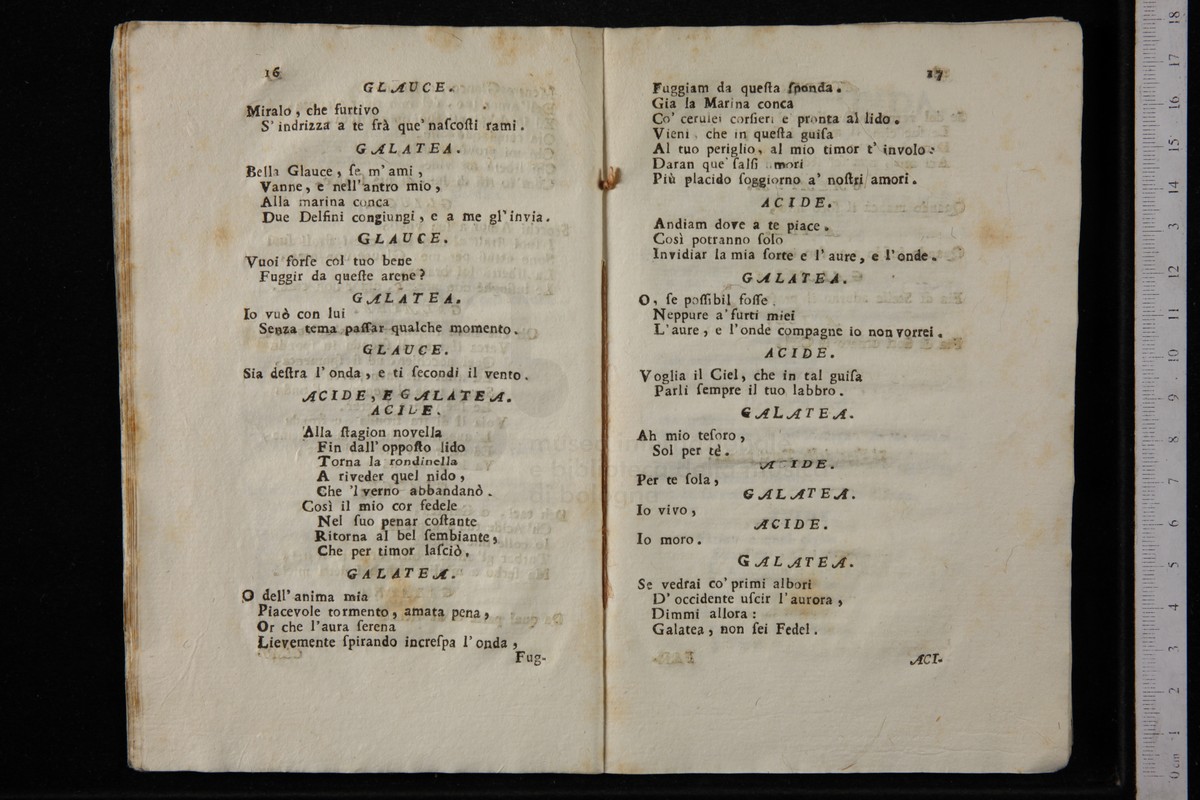 16
GLAUCE.
Miralo, che furtivo
S'indrizza a te frà que' nascosti rami.
GALATEA.
Bella Glauce, se m'ami,
Vanne, e nell'antro mio,
Alla marina conca
Due Delfini congiungi, e a me gl'invia.
GLAUCE.
Vuoi forse col tuo bene
Fuggir da queste arene?
GALATEA.
Io vuò con lui
Senza tema passar qualche momento.
GLAUCE.
Sia destra l'onda, e ti secondi il vento.
ACIDE, E GALATEA.
ACIDE.
Alla stagion novella
Fin dall'opposto lido
Torna la rondinella
A riveder quel nido,
Che 'l verno abbandanò.
Così il mio cor fedele
Nel suo penar costante
Ritorna al bel sembiante,
Che per timor lasciò.
GALATEA.
O dell'anima mia
Piacevole tormento, amata pena,
Or che l'aura serena
Lievemente spirando increspa l'onda,
Fug-
17
Fuggiam da questa sponda.
Gia la Marina conca
Co' cerulei corsieri e pronta al lido.
Vieni, che in questa guisa
Al tuo periglio, al mio timor t'involo:
Daran que' salsi umori
Più placido soggiorno a' nostri amori.
ACIDE.
Andiam dove a te piace.
Così potranno solo
Invidiar la mia sorte e l'aure, e l'onde.
GALATEA.
O, se possibil fosse.
Neppure a'furti miei
L'aure, e l'onde compagne io non vorrei.
ACIDE.
Voglia il Ciel, che in tal guisa
Parli sempre il tuo labbro.
GALATEA.
Ah mio tesoro,
Sol per té.
A IDE.
Per te sola,
GALATEA.
Io vivo,
ACIDE.
Io moro.
GALATEA.
Se vedrai co' primi albori
D'occidente uscir l'aurora,
Dimmi allora:
Galatea, non sei Fedel.
ACI-